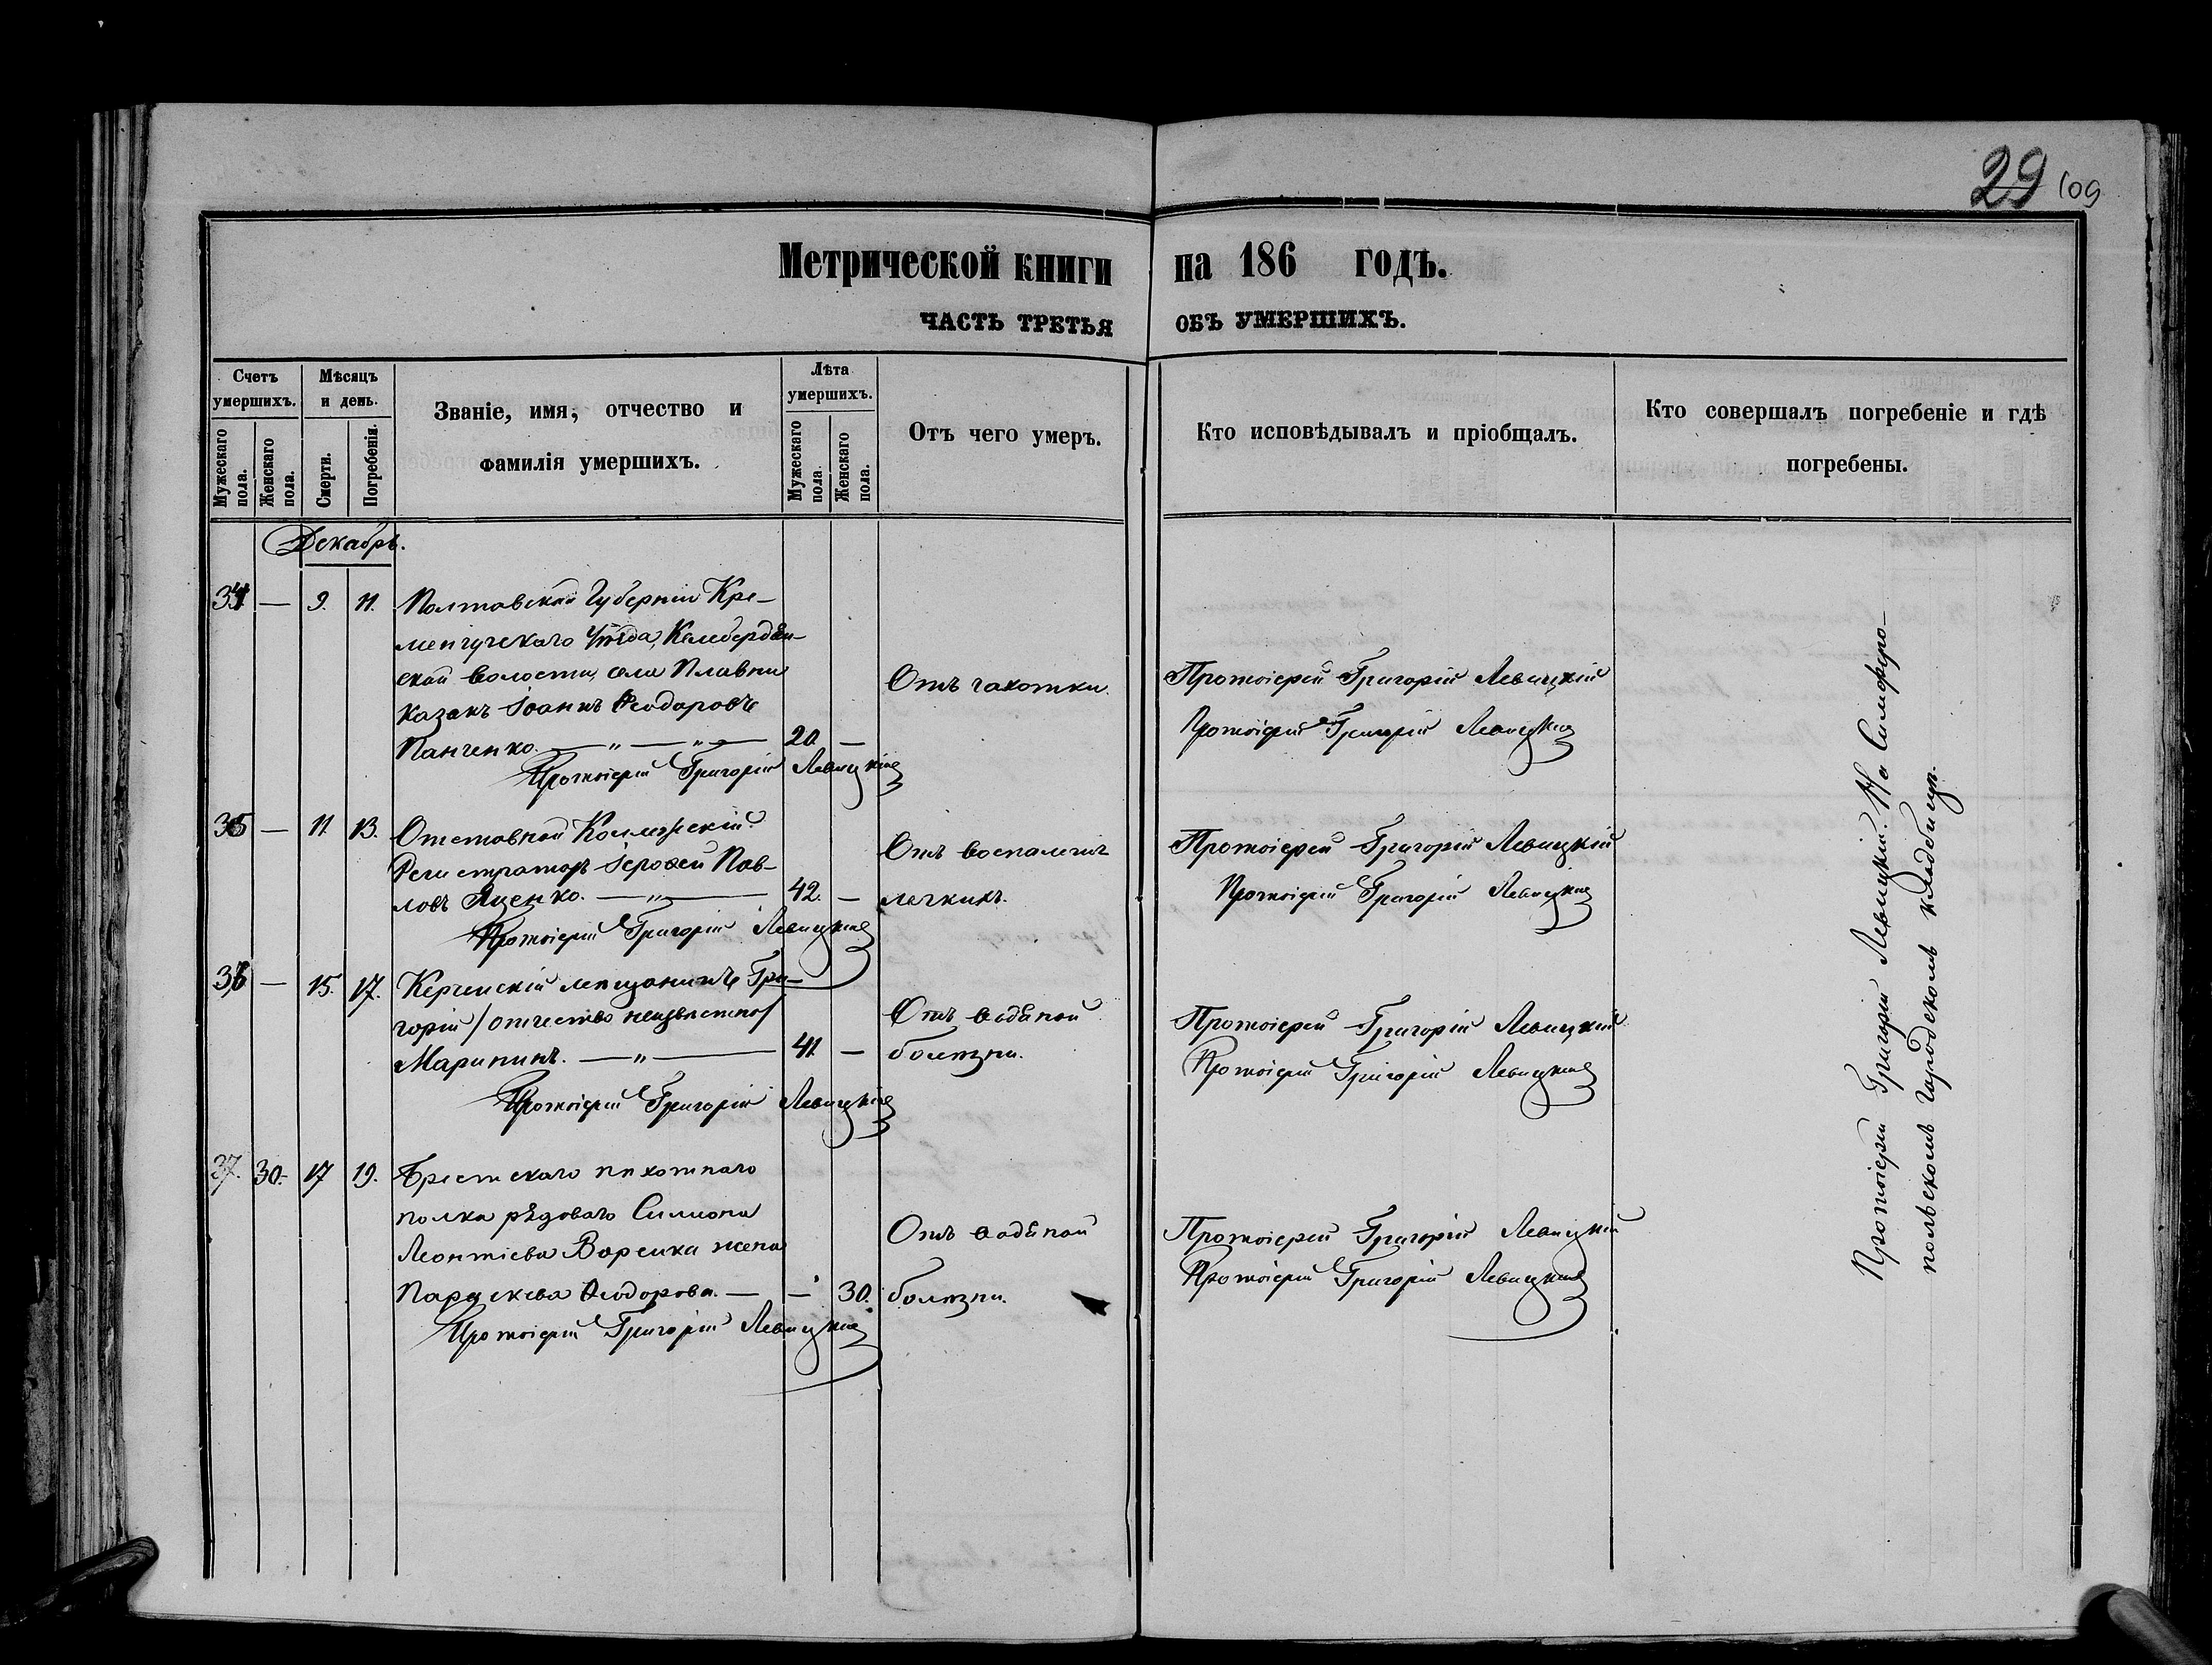 29 109
Метрической книги на 186 годъ.
ЧАСТЬ ТРЕТЬЯ ОБЪ УМЕРШИХЪ.
Счетъ умершихъ.
Мужескаго пола.
Женскаго пола.
Мѣсяцъ и день.
Смерти.
Погребенія.
Званіе, имя, отчество и
фамилія умершихъ.
Лѣта умершихъ.
Мужескаго пола.
Женскаго пола.
Отъ чего умеръ.
Кто исповѣдывалъ и пріобщалъ.
Кто совершалъ погребеніе и гдѣ
погребены.
Декабрь.
34 — 9. 11. Полтавской Губерніи Кре-
менчугскаго уѣзда, Келебердян-
ской волости, села Плавни
Казакъ Іоаннъ Ѳеодоровъ
Панченко. — „ — „ — 20 —
Отъ чахотки.
Протоіерей Григорій Левицкій
Протоіерей Григорій Левицкій
Протоіерей Григорій Левицкій
35 — 11. 13. Отставной Коллежскій
Регистраторъ Іероѳей Пав-
ловъ Яценко. — „ — 42. —
Отъ воспаленія
легкихъ.
Протоіерей Григорій Левицкій
Протоіерей Григорій Левицкій
Протоіерей Григорій Левицкій
36 — 15. 17. Керченскій мещанинъ Гри-
горій /отчество неизвѣстно/
Марининъ. — „ — 41. —
Отъ водяной
болѣзни.
Протоіерей Григорій Левицкій
Протоіерей Григорій Левицкій
Протоіерей Григорій Левицкій
37. 30. 17 19. Брестскаго пѣхотнаго
полка рядоваго Симиона
Леонтіева Варейка жена
Параскева Ѳеодорова. — — 30.
Отъ водяной
болѣзни.
Протоіерей Григорій Левицкій
Протоіерей Григорій Левицкій
Протоіерей Григорій Левицкій
Протоіерей Григорій Левицкій. На Симферо-
польскомъ городскомъ кладбищѣ.